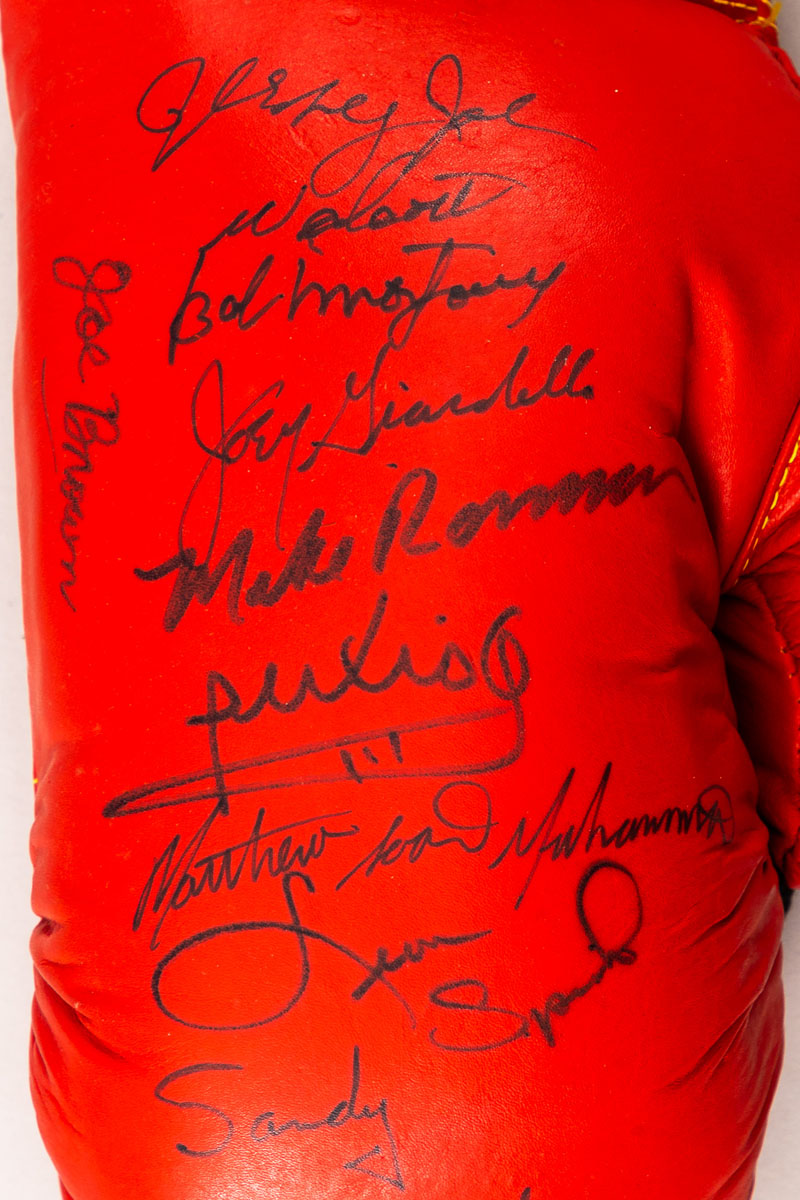 Jersey Joe
Walcott
Bob Montgomery
Joey Giardello
Mike Rossman
Matthew Saad Muhammad
Leon
Spinks
Sandy
Joe Brown